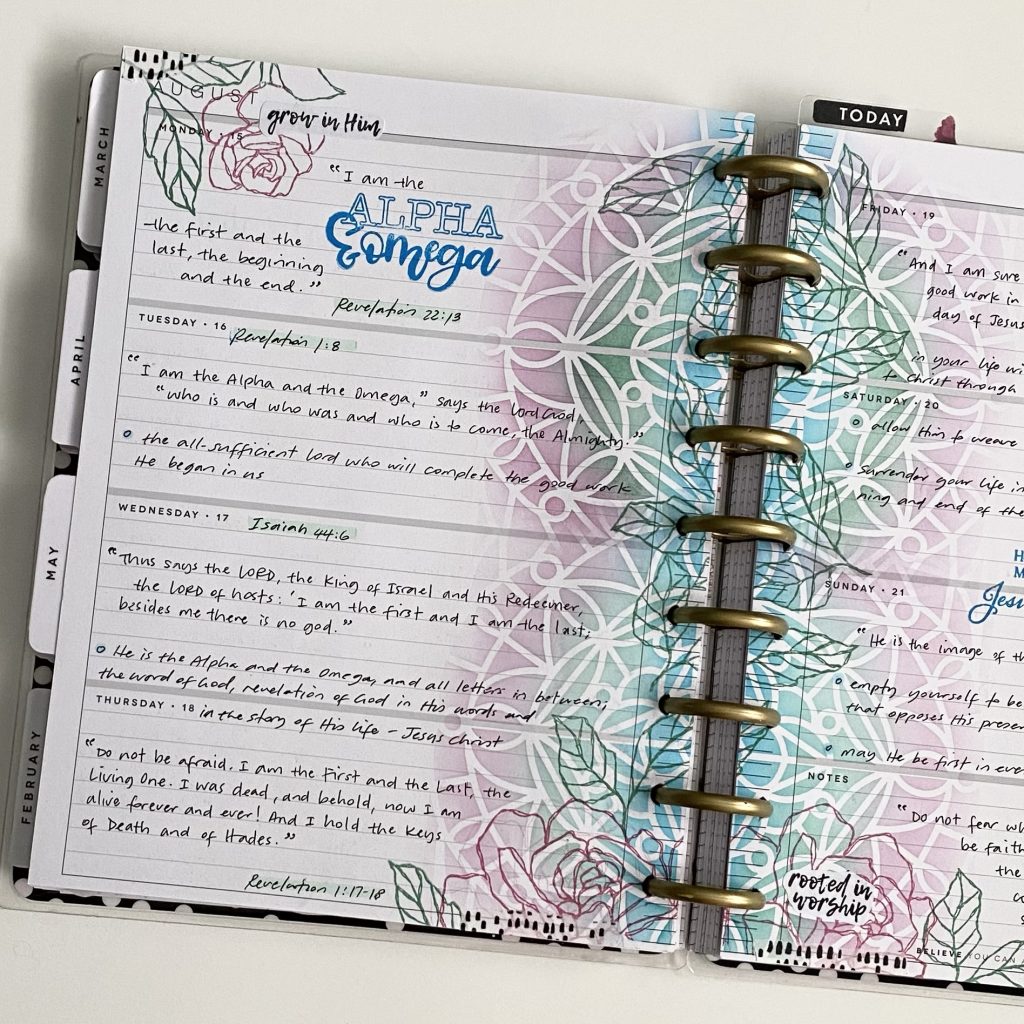 AUGUST
grow in Him
MONDAY · 15
"I am the
ALPHA
& omega
the first and the
last, the beginning
and the end."
Revelation 22:13
TUESDAY · 16
Revelation 1:8
"I am the Alpha and the Omega," says the Lord God,
"who is and who was and who is to come, the Almighty."
the all-sufficient Lord who will complete the good work
He began in us
WEDNESDAY · 17
Isaiah 44:6
"Thus says the LORD, the King of Israel and His Redeemer,
the LORD of hosts: 'I am the first and I am the last;
besides me there is no god."
He is the Alpha and the Omega, and all letters in between;
the word of God, revelation of God in His words and
in the story of His life - Jesus Christ
THURSDAY · 18
"Do not be afraid. I am the First and the Last, the
Living One. I was dead, and behold, now I am
alive forever and ever! And I hold the keys
of Death and of Hades."
Revelation 1:17-18
MARCH
APRIL
MAY
FEBRUARY
TODAY
FRIDAY · 19
"And I am sure
good work in
day of Jesus
in your life
to Christ through
SATURDAY · 20
allow Him to weave
surrender your life
ning and end of the
SUNDAY · 21
Jesu
"He is the image of th
empty yourself to be
that opposes His prese
may He be first in ever
NOTES
"Do not fear wh
be faith
the
rooted in
worship
BELIEVE YOU CAN